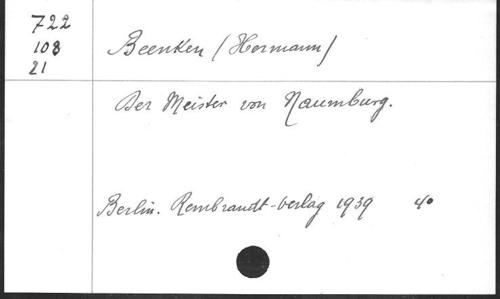 722
103
21
Beenken (Hermann)
Der Meister von Naumburg.
Berlin. Rembrandt-Verlag 1939 4°